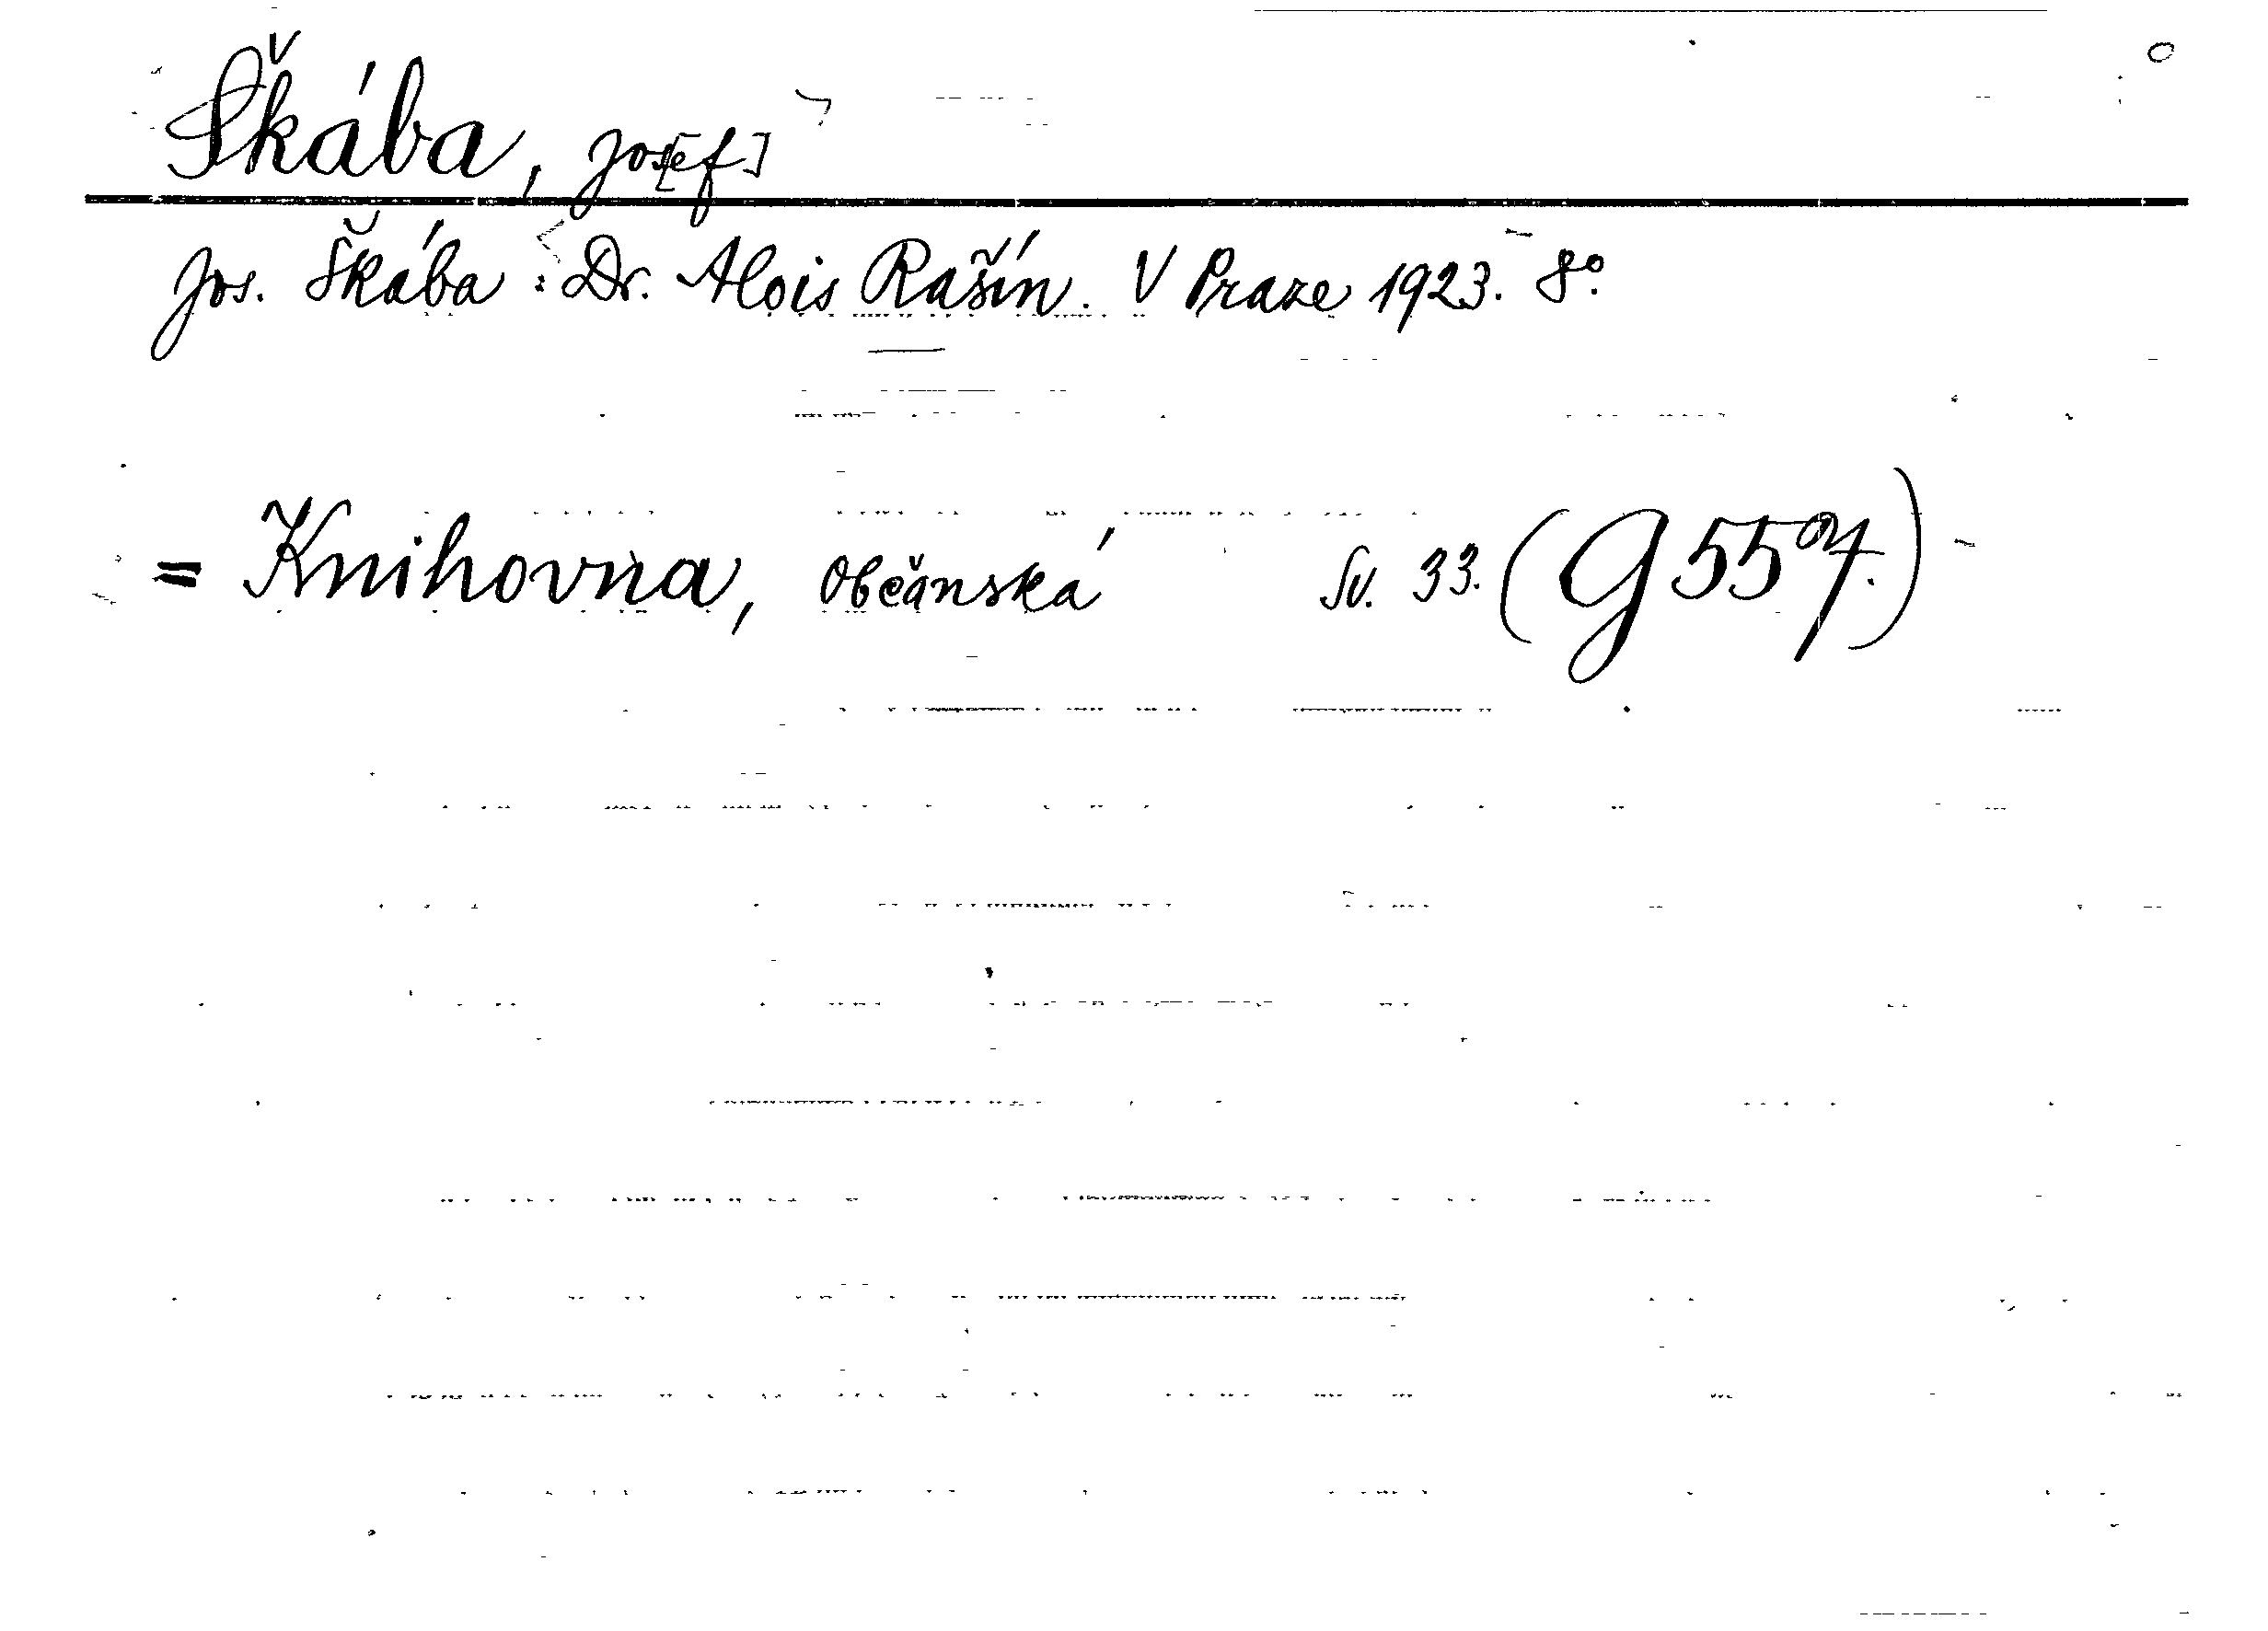 Škába, Jos[ef]
Jos. Škába: Dr. Alois Rašín. V Praze 1923. 8°.
= Knihovna, Občanská Sv. 33. (G 557.)